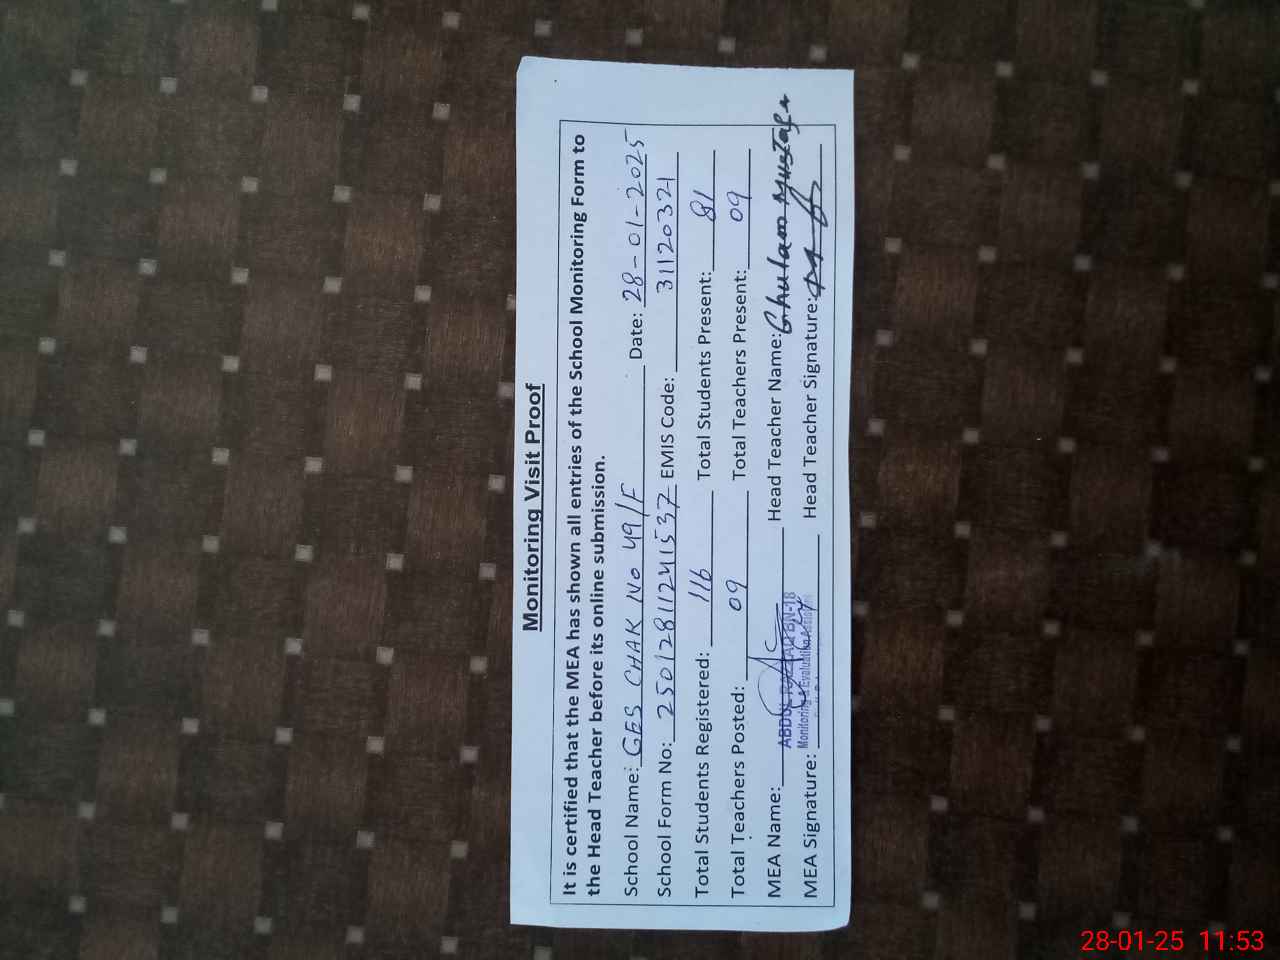 Monitoring Visit Proof
It is certified that the MEA has shown all entries of the School Monitoring Form to
the Head Teacher before its online submission.
School Name: GES CHAK No 49/F Date: 28-01-2025
School Form No: 250128112241537 EMIS Code: 31120321
Total Students Registered: 116 Total Students Present: 81
Total Teachers Posted: 09 Total Teachers Present: 09
MEA Name: ABDUL RAZZAQ BN-18 Head Teacher Name: Ghulam Mustafa
Monitoring & Evaluation Assistant
MEA Signature: Head Teacher Signature:
28-01-25 11:53